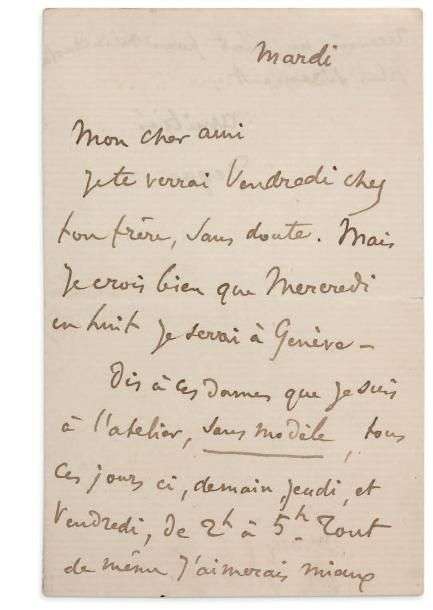 Mardi
Mon cher ami
Je te verrai Vendredi chez
ton frère, sans doute. Mais
Je crois bien que Mercredi
en huit Je serai à Genève –
Dis à ces Dames que Je suis
à l'atelier, sans modèle, tous
ces jours ci, demain, Jeudi, et
Vendredi, de 2h à 5h. Tout
de même J'aimerais mieux